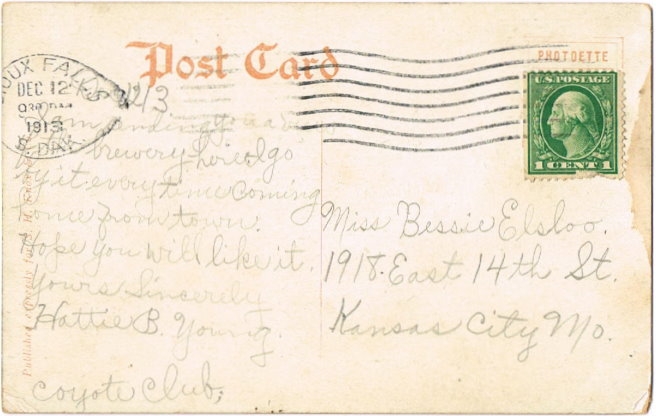 Post Card
PHOTOETTE
U.S. POSTAGE
1 CENT 1
SIOUX FALLS
DEC 12
930 PM
1913
S. DAK.
I am sending you a
brewery here I go
by it every time coming
home from town.
Hope you will like it.
Yours Sincerely
Hattie B. Young.
Coyote Club,
Miss Bessie Elsloo.
1918. East 14th St.
Kansas City Mo.
Published